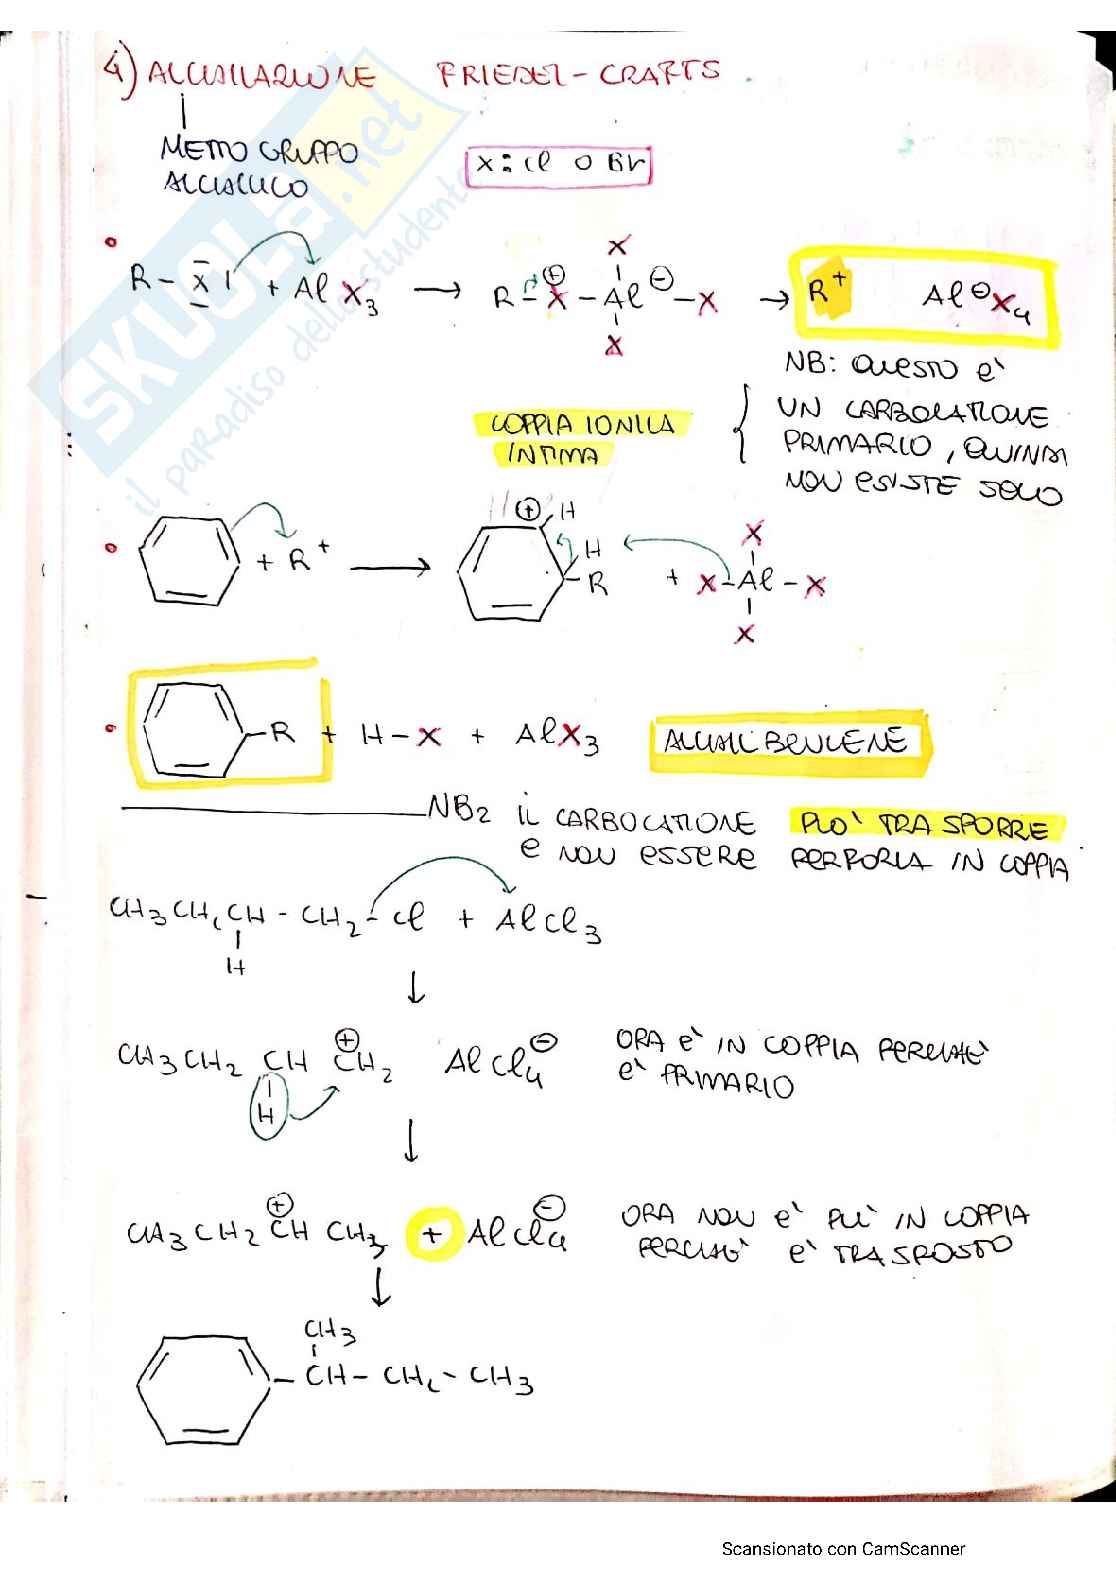 4) ALCHILAZIONE FRIEDEL-CRAFTS
METTO GRUPPO
ALCHILICO
X: Cl O Br
R - X| + Al X3 → R - X⊕ - Al⊖ - X → R+ Al⊖X4
X
X
NB: QUESTO è
UN CARBOCATIONE
PRIMARIO, QUINDI
NON ESISTE SOLO
COPPIA IONICA
INTIMA
+ R+ → ⊕ H
H
R
+ X-Al-X
X
X
-R + H-X + AlX3 ALCHIL BENZENE
NB2 IL CARBOCATIONE PUO' TRASPORRE
E NON ESSERE PERPORLA IN COPPIA
CH3CH2CH - CH2 - Cl + AlCl3
H
↓
CH3CH2 CH ⊕CH2 AlCl4⊖ ORA è IN COPPIA PERCHè
H
è PRIMARIO
↓
CH3CH2⊕CH CH3 + AlCl4⊖ ORA NON è PIU' IN COPPIA
PERCHè è TRASPOSTO
↓
CH3
- CH - CH2 - CH3
SKUOLA.net
il paradiso dello studente
Scansionato con CamScanner